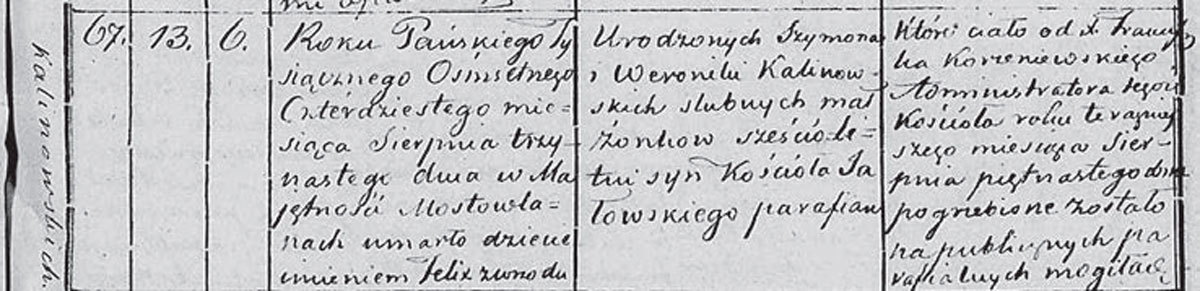 Kalinowskich.
67. 13. 6.
Roku Pańskiego Ty
siącznego Ośmsetnego
Czterdziestego mie=
siąca Sierpnia trzy=
nastego dnia w Ma
jętności Mostowla=
nach umarło dziecie
imieniem Felix zwrodu
Urodzonych Szymona
i Weroniki Kalinow=
skich slubnych mał
żonkow sześciole=
tni syn Kościoła Ja
łowskiego parafian
Któré ciało od X. Francisz
ka Korzeniewskiego
Administratora tegoż
Kościoła roku teraźniej
szego miesiąca Sier=
pnia piętnastego dnia
pogrzebione zostało
na publicznych pa
rafialnych mogiłach